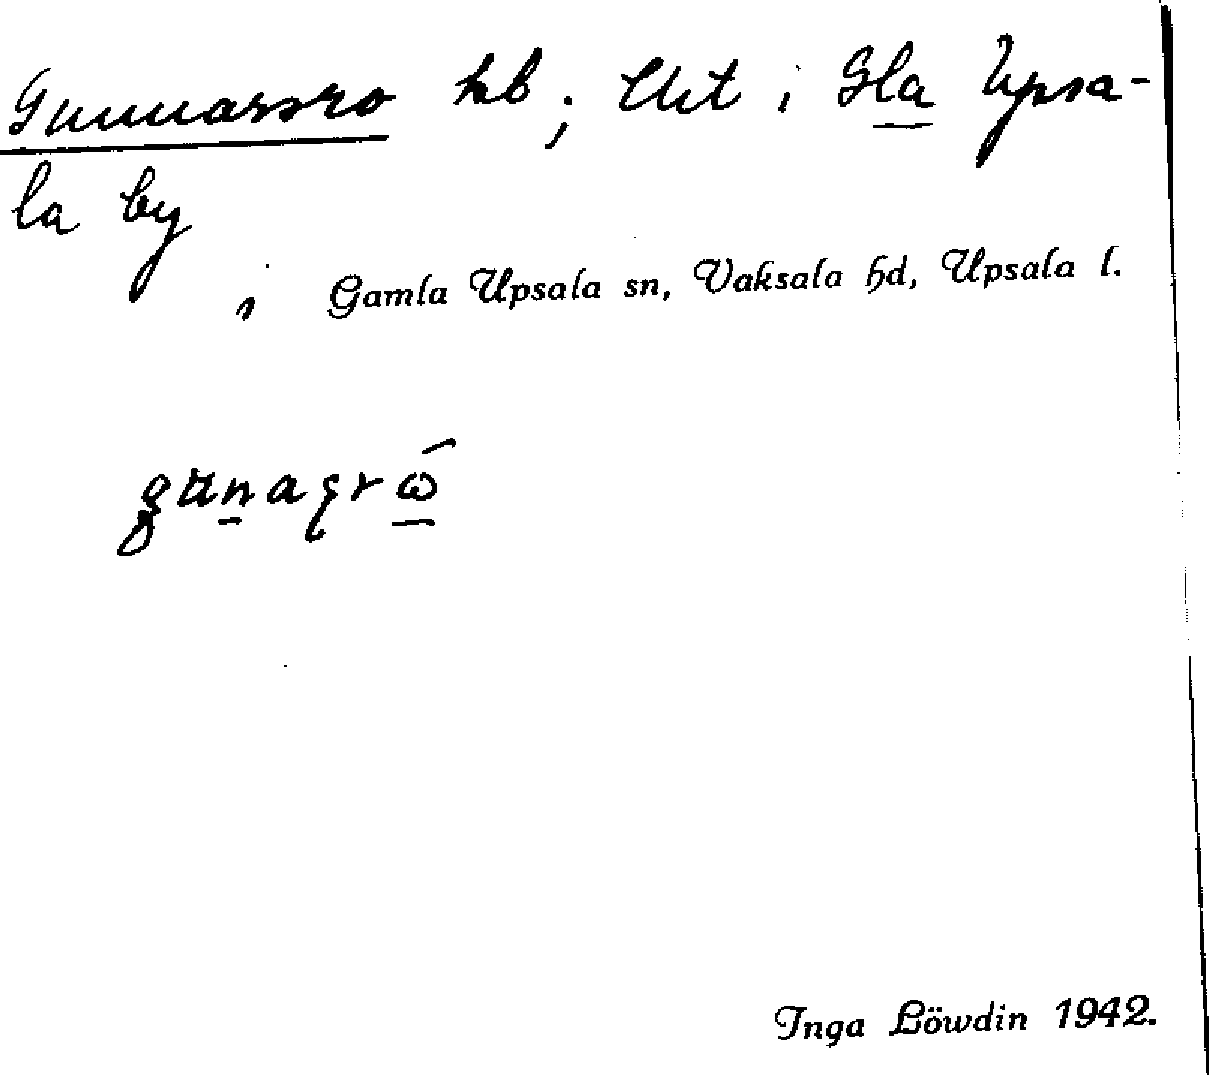 Gunnarsro hb; Ut i Gla Upsa-
la by
, Gamla Upsala sn, Vaksala hd, Upsala l.
Inga Löwdin 1942.